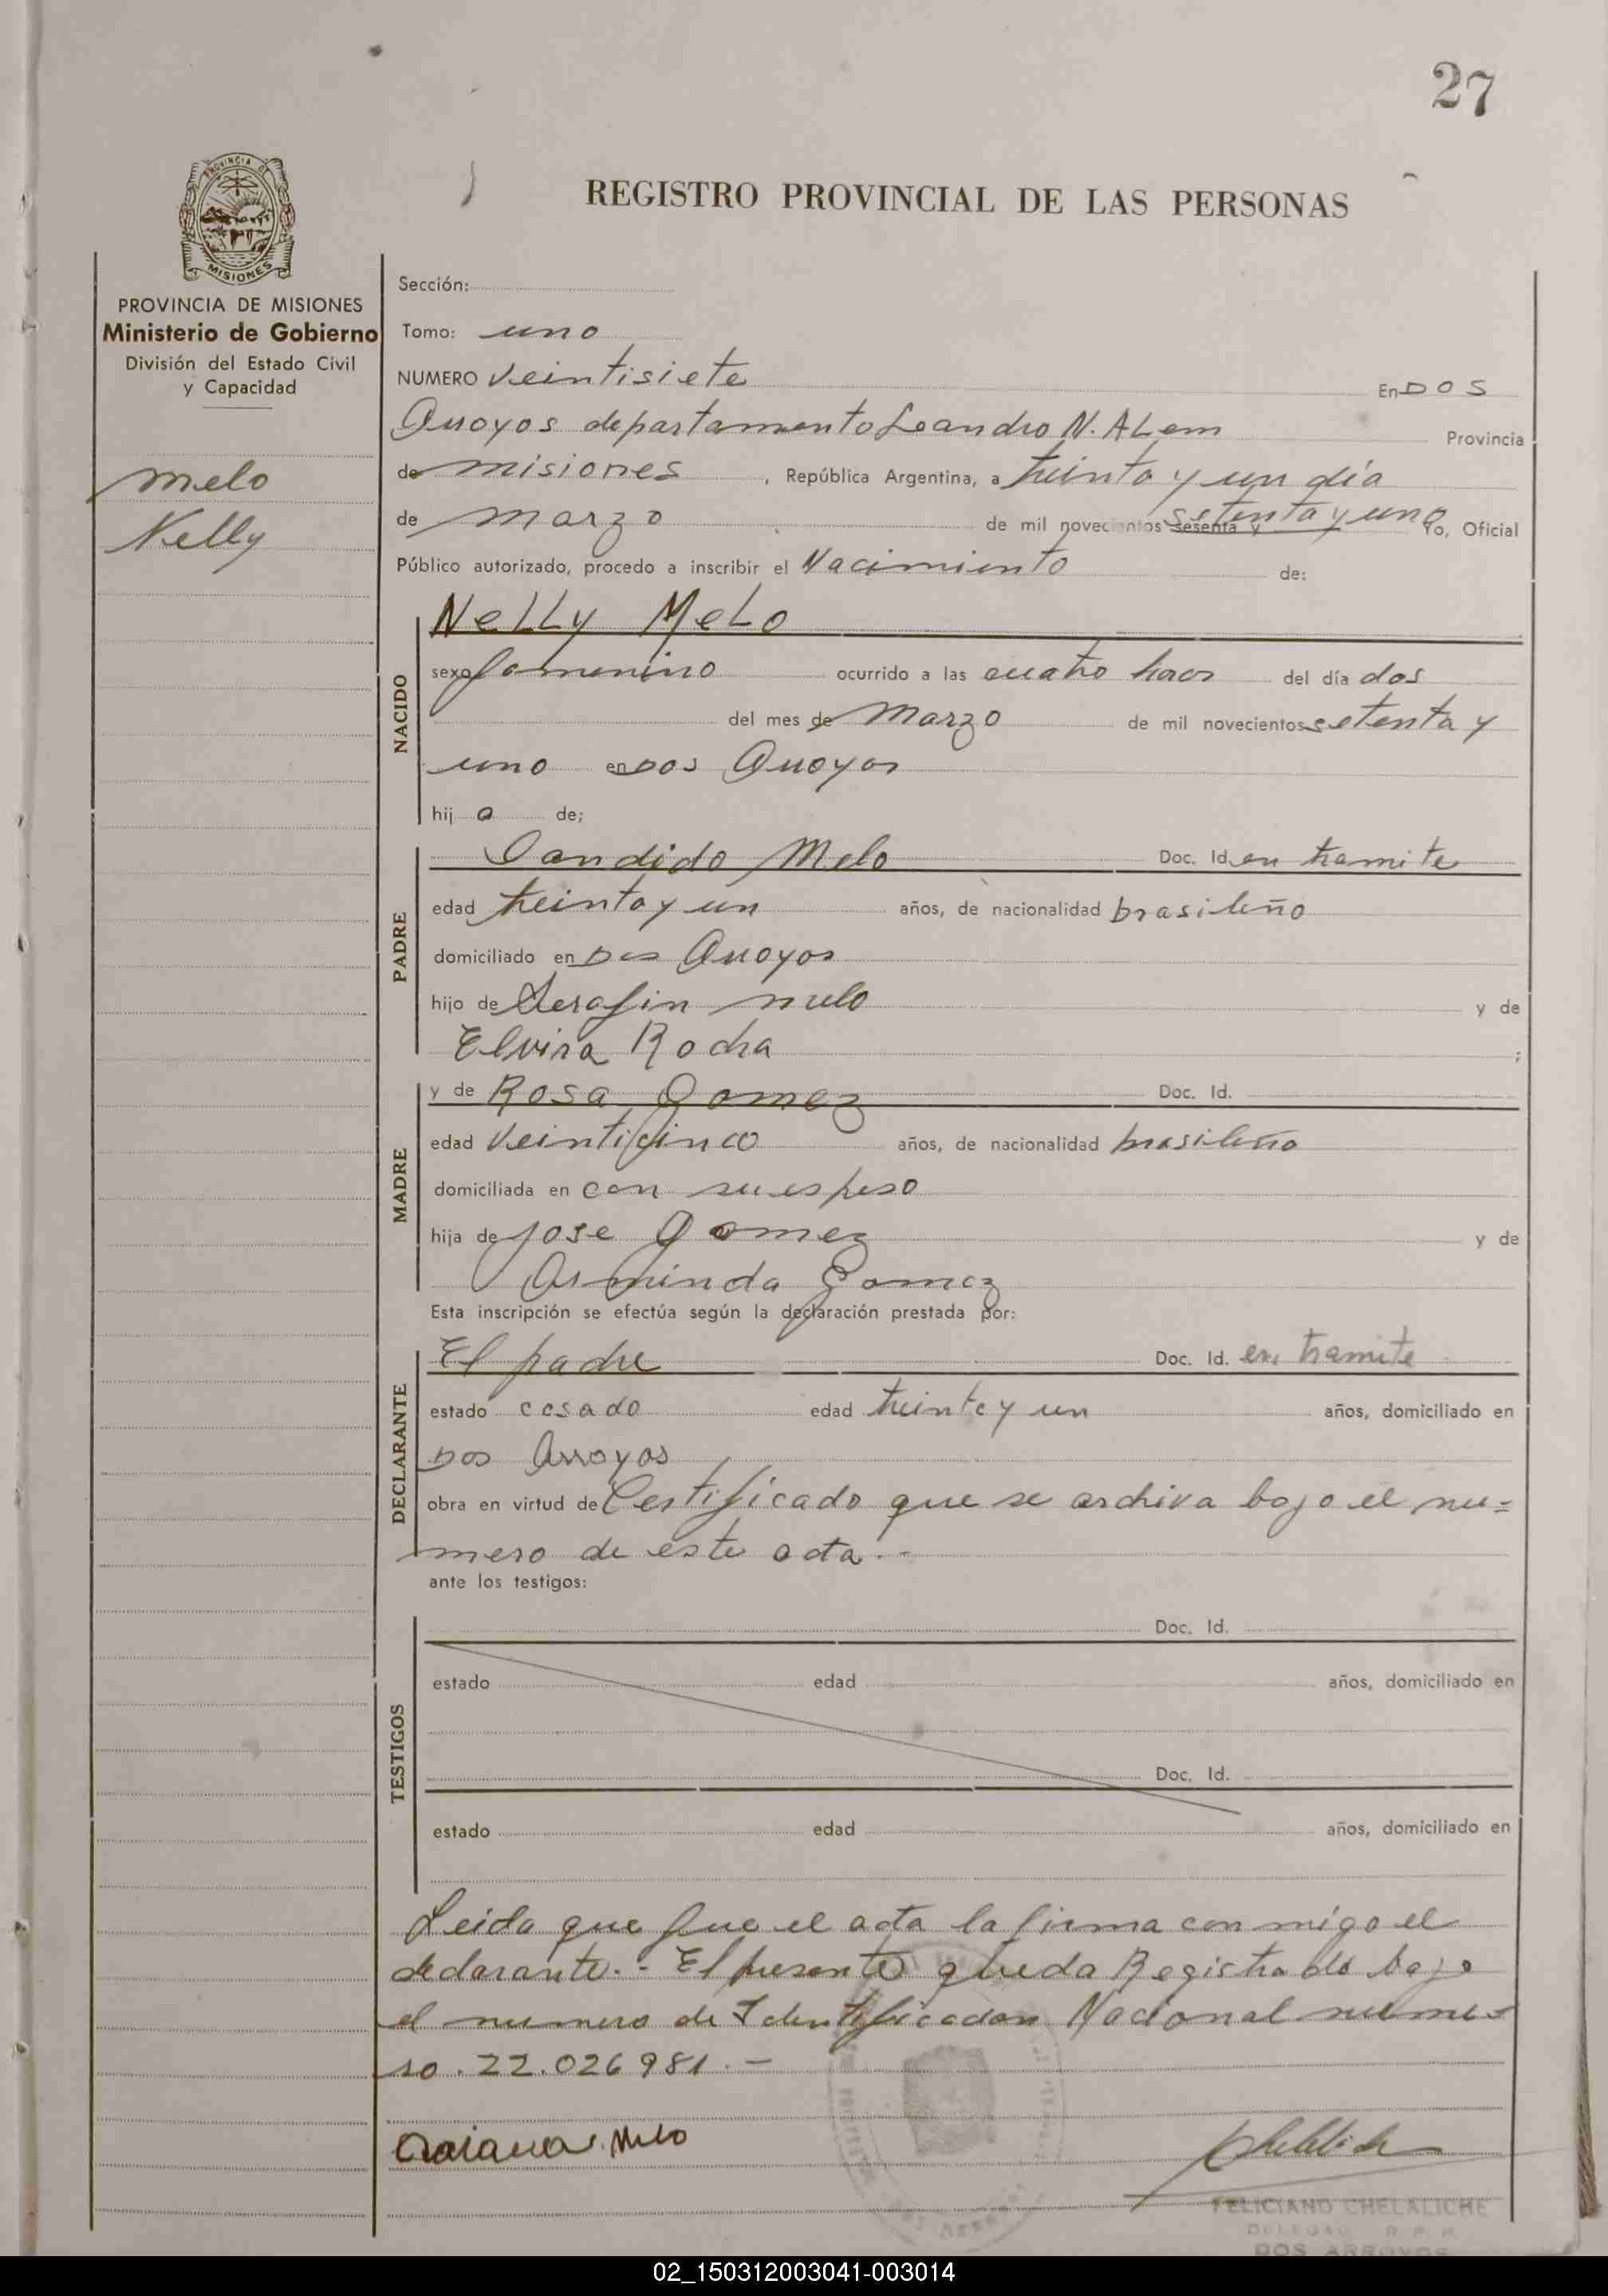 27
PROVINCIA DE
MISIONES
REGISTRO PROVINCIAL DE LAS PERSONAS
PROVINCIA DE MISIONES
Ministerio de Gobierno
División del Estado Civil
y Capacidad
Melo
Nelly
Sección:
Tomo: uno
NUMERO veintisiete En DOS
Arroyos departamento Leandro N. ALem Provincia
de misiones , República Argentina, a treinta y un día
de marzo de mil novecientos sesenta y setenta y uno Yo, Oficial
Público autorizado, procedo a inscribir el Nacimiento de:
NACIDO
NeLLy MeLo
sexo femenino ocurrido a las cuatro horas del día dos
del mes de Marzo de mil novecientos setenta y
uno en DOS Arroyos
hij a de;
PADRE
Candido Melo Doc. Id. en tramite
edad treinta y un años, de nacionalidad brasileño
domiciliado en Dos Arroyos
hijo de Serafin melo y de
Elvira Rocha ;
MADRE
y de Rosa Gomez Doc. Id.
edad veinticinco años, de nacionalidad brasileña
domiciliada en con su esposo
hija de Jose Gomez y de
Arminda Gomez
Esta inscripción se efectúa según la declaración prestada por:
DECLARANTE
El padre Doc. Id. en tramite
estado casado edad treinta y un años, domiciliado en
Dos Arroyos
obra en virtud de Certificado que se archiva bajo el nu=
mero de este acta.-
ante los testigos:
TESTIGOS
Doc. Id.
estado edad años, domiciliado en
Doc. Id.
estado edad años, domiciliado en
Leida que fue el acta la firma con migo el
declarante.- El presente queda Registrado bajo
el numero de Identificacion Nacional nume-
ro. 22.026981.-
Melo
FELICIANO CHELALICHE
DELEGADO R. P. P.
DOS ARROYOS
02_150312003041-003014